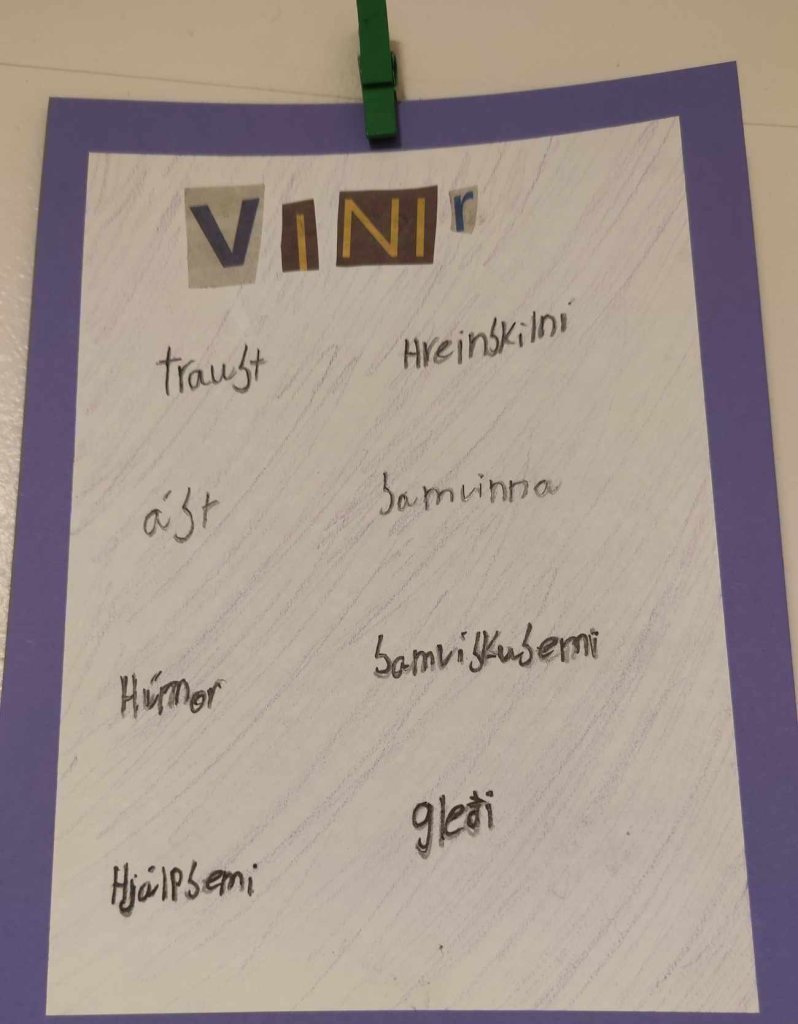 VINIr
traust Hreinskilni
ást samvinna
Húmor samviskusemi
Hjálpsemi gleði